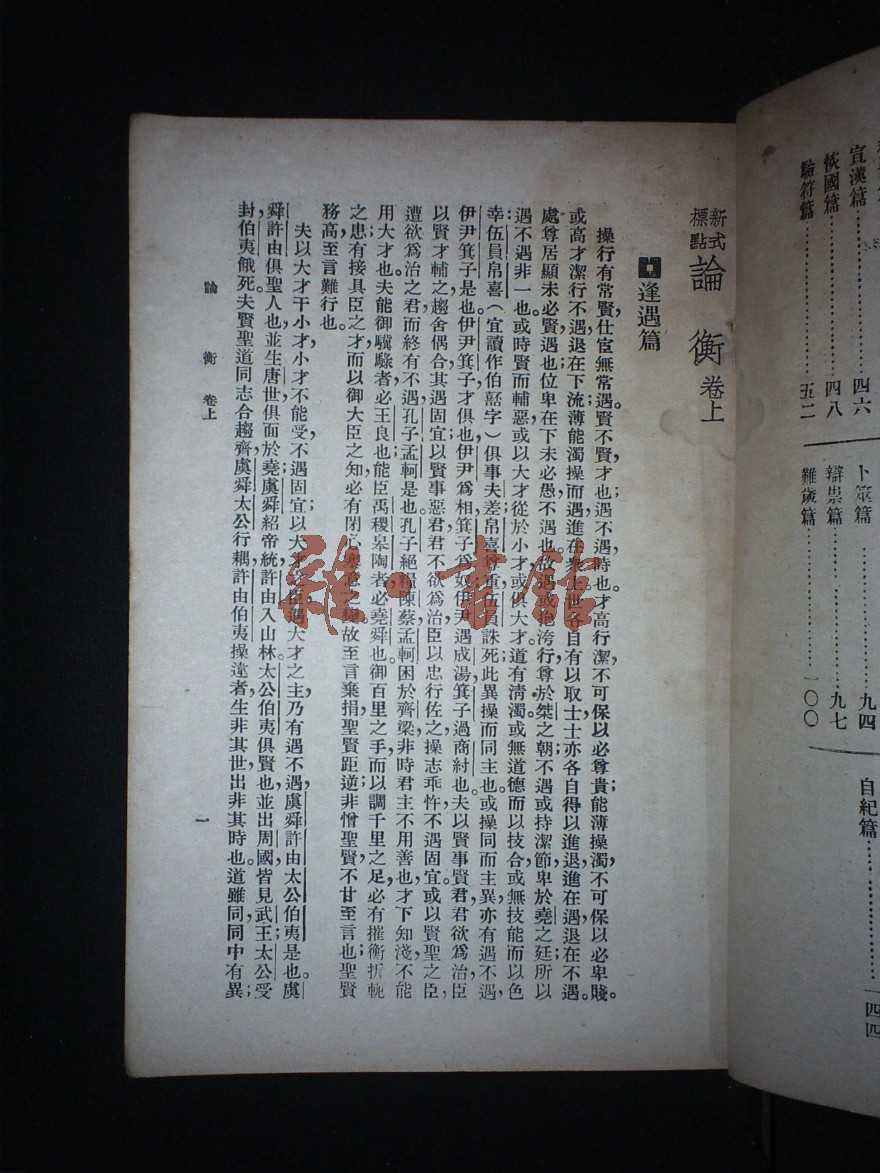 宣漢篇……四六
恢國篇……四八
驗符篇……五二
卜筮篇……九四
辯祟篇……九七
難歲篇……一〇〇
自紀篇……一四四
新式標點 論衡 卷上
逢遇篇
操行有常賢，仕宦無常遇。賢不賢，才也；遇不遇，時也。才高行潔，不可保以必尊貴；能薄操濁，不可保以必卑賤。
或高才潔行，不遇退在下流；薄能濁操而遇，進在衆上。世各自有以取士，士亦各自得以進退，進在遇，退在不遇。
處尊居顯，未必賢，遇也；位卑在下，未必愚，不遇也。故遇或抱洿行，尊於桀之朝；不遇或持潔節，卑於堯之廷。所以
遇不遇非一也：或時賢而輔惡；或以大才從於小才；或俱大才，道有清濁；或無道德，而以技合；或無技能，而以色
幸。伍員帛喜，（宜讀作伯嚭字）俱事夫差，帛喜尊重，伍員誅死，此異操而同主也。或操同而主異，亦有遇不遇，
伊尹箕子是也。伊尹箕子才俱也，伊尹爲相，箕子爲奴；伊尹遇成湯，箕子遇商紂也。夫以賢事賢君，君欲爲治，臣
以賢才輔之，趨舍偶合，其遇固宜；以賢事惡君，君不欲爲治，臣以忠行佐之，操志乖忤，不遇固宜。或以賢聖之臣，
遭欲爲治之君，而終有不遇，孔子孟軻是也。孔子絕糧陳蔡，孟軻困於齊梁，非時君主不用善也，才下知淺，不能
用大才也。夫能御驥騄者，必王良也；能臣禹稷皋陶者，必堯舜也。御百里之手，而以調千里之足，必有摧衡折軛
之患；有接具臣之才，而以御大臣之知，必有閉心塞意之變。故至言棄捐，聖賢距逆，非憎聖賢，不甘至言也；聖賢
務高，至言難行也。
夫以大才干小才，小才不能受，不遇固宜；以大才之臣，遇大才之主，乃有遇不遇，虞舜許由太公伯夷是也。虞
舜許由俱聖人也，並生唐世，俱面於堯，虞舜紹帝統，許由入山林；太公伯夷俱賢也，並出周國，皆見武王；太公受
封，伯夷餓死。夫賢聖道同，志合趨齊，虞舜太公行耦，許由伯夷操違者，生非其世，出非其時也。道雖同，同中有異；
論衡 卷上 一
雜·書館